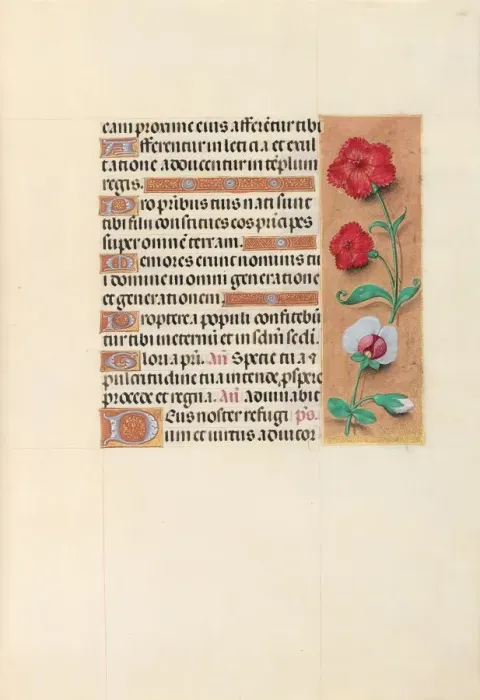 eam proxime eius afferētur tibi
Afferentur in leticia et exul
tatione aducentur in tēplum
regis.
Pro patribus tuis nati sunt
tibi filii constitues eos prīcipes
super omnē terram.
Memores erunt nominis tu
i domine in omni generatione
et generationem.
Propterea populi confitebū
tur tibi in eternū et in sclm̄ scli.
Gloria pr̄i. An̄ Specie tua et
pulcritudine tua intende, pspere
procede et regna. An̄ Adiuuabit
Deus noster refugi ps.
um et uirtus adiutor